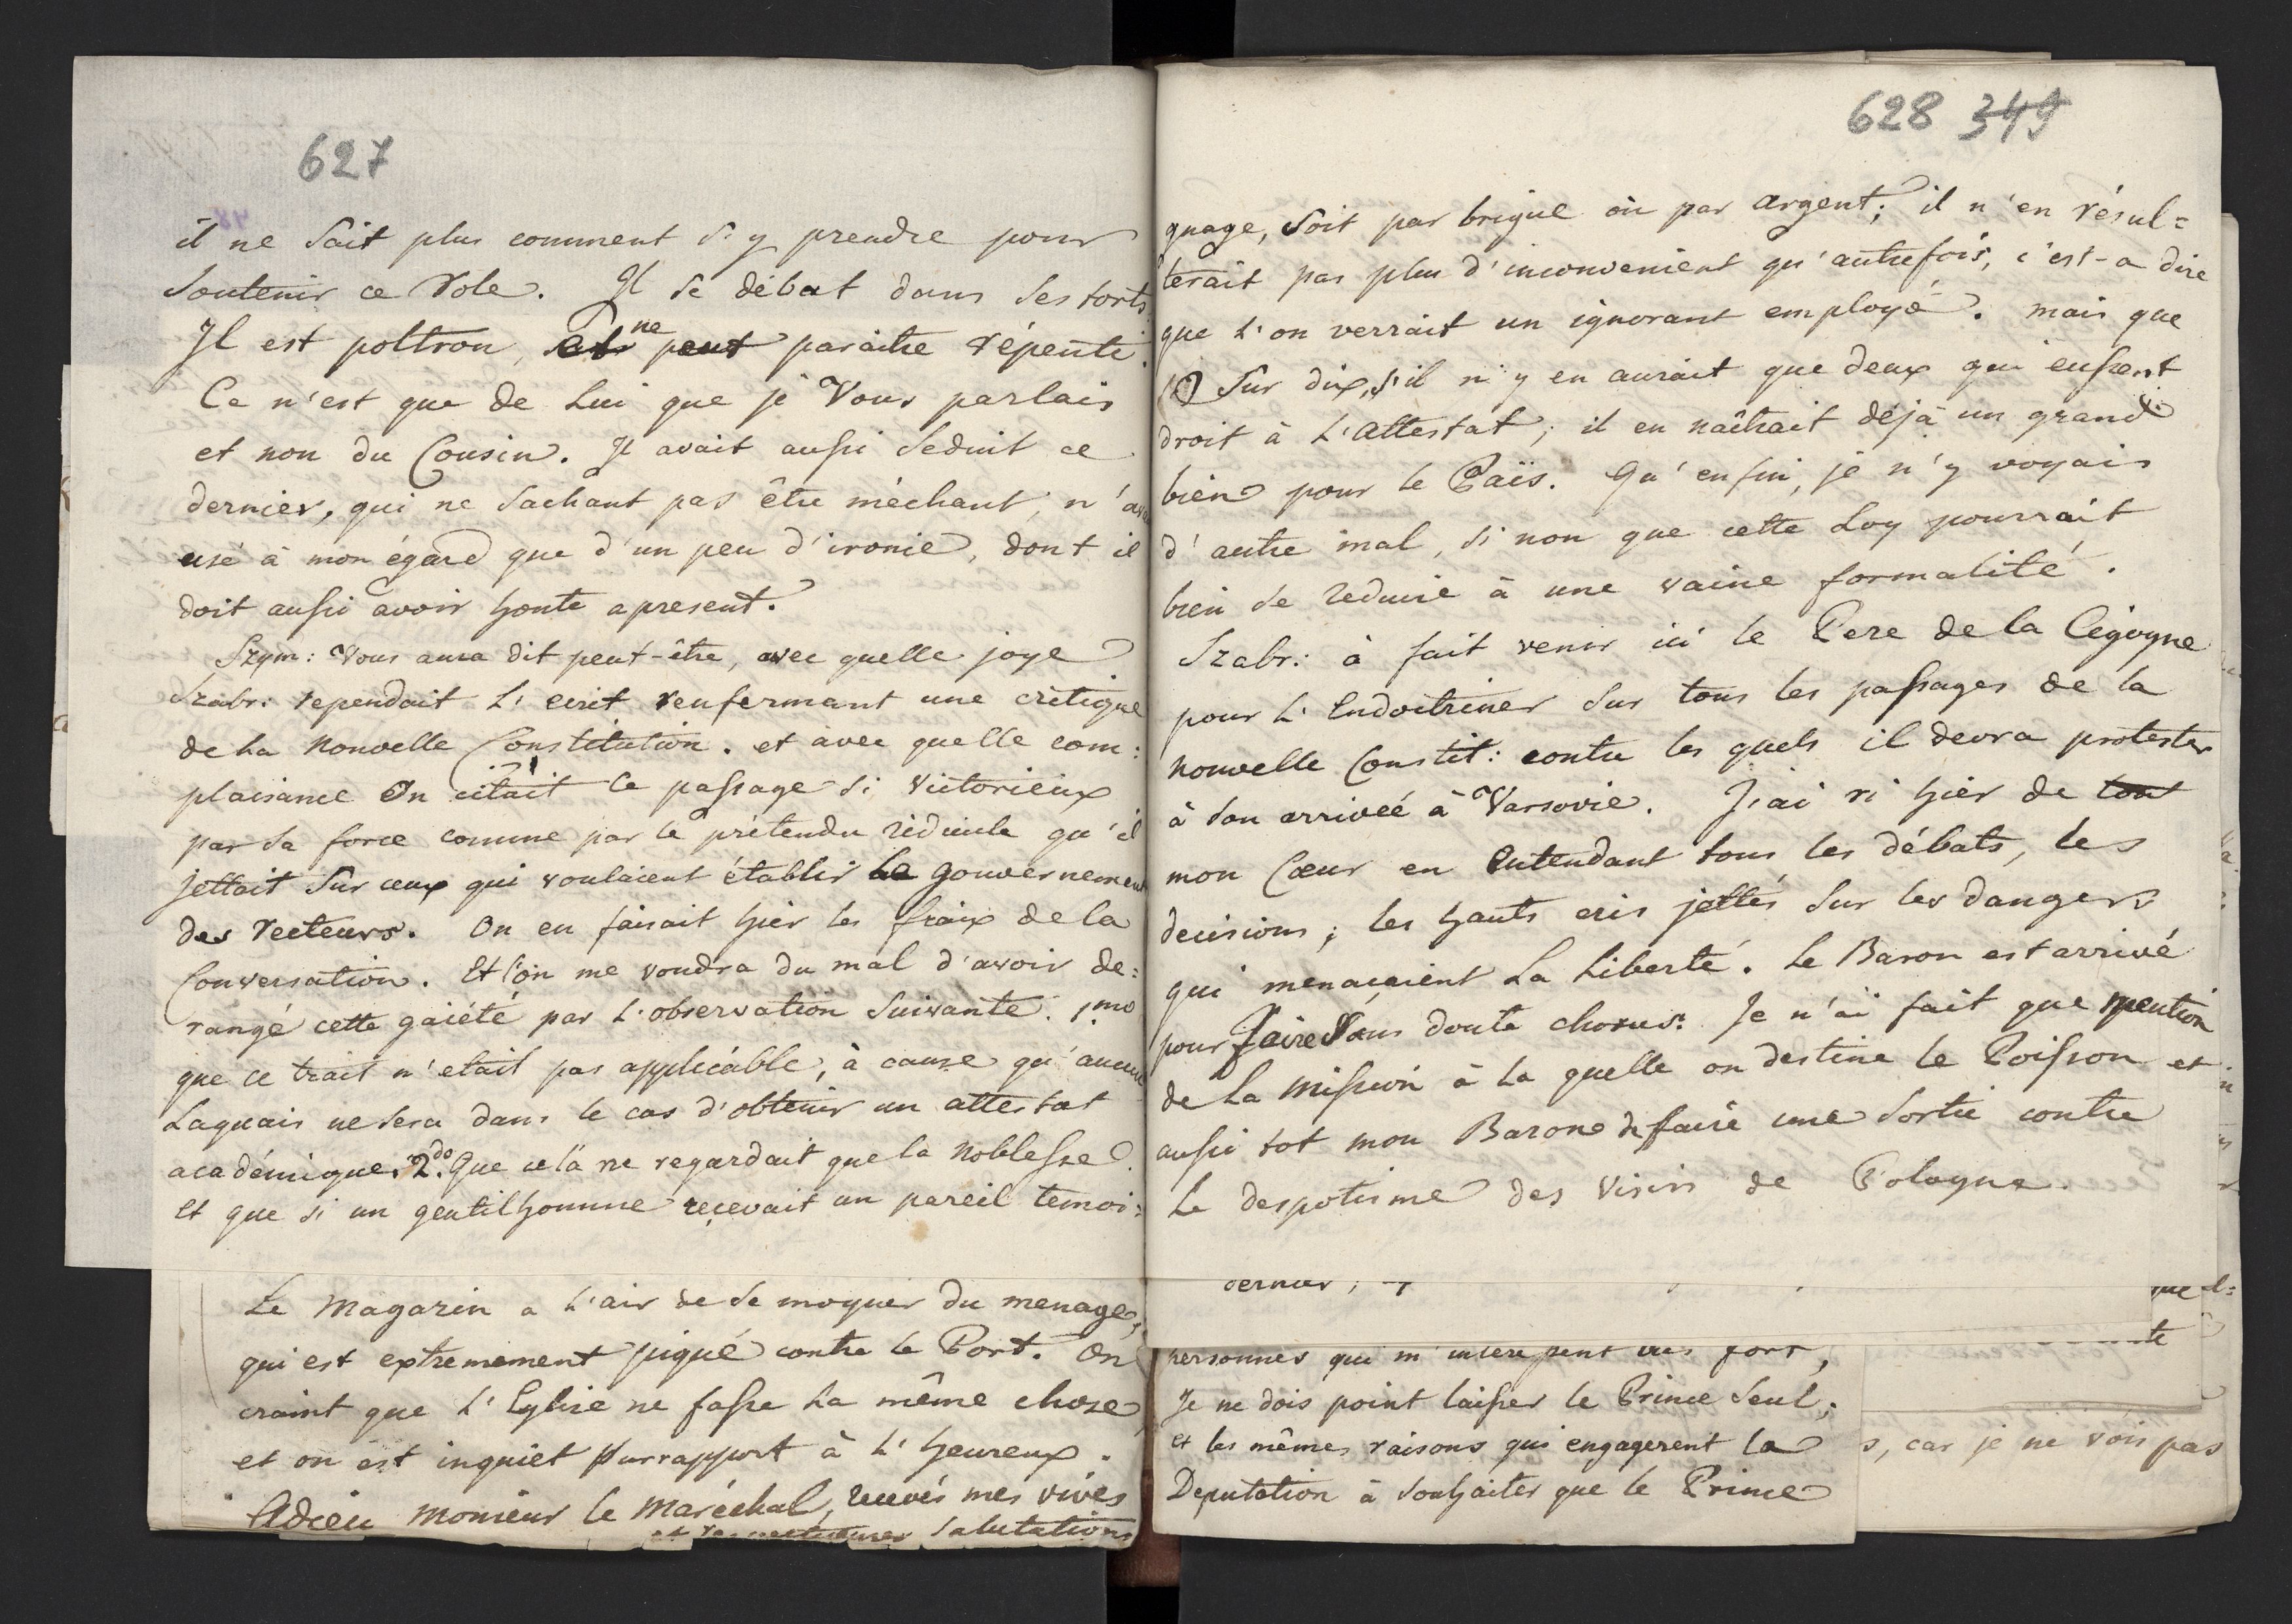 627
il ne Sait plus comment S'y prendre pour
Soutenir ce Role. Il Se débat dans Ses torts.
Il est poltron, et ne peut paraitre répenti.
Ce n'est que de Lui que je Vous parlais
et non du Cousin. Il avait aussi Seduit ce
dernier, qui ne Sachant pas être méchant, n'
usé à mon égard que d'un peu d'ironie, dont il
doit aussi avoir honte apresent.
Szym: Vous aura dit peut-être, avec quelle joye
Szabr: rependait L'ecrit renfermant une critique
de La Nouvelle Constitution. et avec quelle com:
plaisance On citait Ce passage Si Victorieux
par Sa force comme par le prétendu ridicule qu'il
jettait Sur ceux qui voulaient établir le gouvernement
des Recteurs. On en faisait hier les fraix de la
Conversation. Et l'on me voudra du mal d'avoir de:
rangé cette gaiété par L'observation Suivante. 1mo
que ce trait n'etait pas applicable, à cause qu'aucun
Laquais ne Sera dans le cas d'obtenir un attestat
académique. 2do. Que cela ne regardait que la Noblesse.
Et que si un gentilhomme reçevait un pareil temoi:
Le Magazin a L'air de Se moquer du menage,
qui est extremement piqué contre le Port. On
craint que L'Eglise ne fasse La même chose
et on est inquiet Surrapport à L'heureux.
Adieu Monsieur le Maréchal, recevés mes vives
et respectueuses Salutations
628 349
gnage, Soit par brigue où par argent; il n'en résul=
terait pas plus d'inconvenient qu'autrefois, c'est-a dire
que L'on verrait un ignorant employé. mais que
Sur dix, s'il n'y en aurait que deux qui eussent
droit à L'attestat; il en naîtrait déjà un grand
bien pour le Païs. Qu'enfin, je n'y voyais
d'autre mal, Si non que cette Loy pourrait
bien Se reduire à une vaine formalité.
Szabr: à fait venir ici le Pere de la Cigogne
pour L'Endoctriner Sur tous les passages de la
nouvelle Constit: contre les quels il devra protester
à Son arriveé à Varsovie. J'ai ri hier de tout
mon Cœur en Entendant tous les débats, les
decisions; les hauts cris jettés Sur les dangers
qui menaçaient La Liberté. Le Baron est arrivé
pour faire Sans doute chorus. Je n'ai fait que mention
de La Mission à La quelle on destine le Poisson et
aussi tot mon Baron de faire une Sortie contre
Le despotisme des Visirs de Pologne.
dernier,
personnes qui fort,
Je ne dois point laisser le Prince Seul,
et les mêmes raisons qui engagerent la
Deputation à Souhaiter que le Prince
s, car je ne vois pas